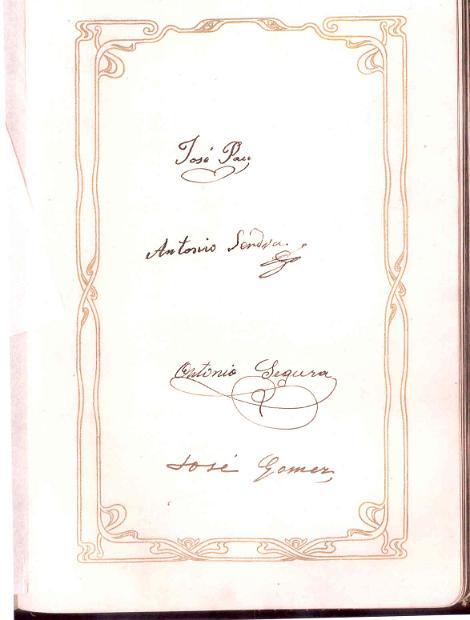 José Pau
Antonio Sendra.
Antonio Segura
José Gomez